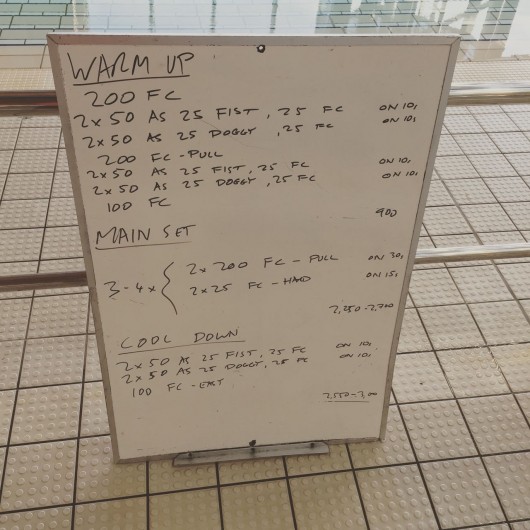 WARM UP
200 FC
2x50 AS 25 FIST, 25 FC ON 10s
2x50 AS 25 DOGGY, 25 FC ON 10s
200 FC - PULL
2x50 AS 25 FIST, 25 FC ON 10s
2x50 AS 25 DOGGY, 25 FC ON 10s
100 FC
900
MAIN SET
3-4x { 2x200 FC - PULL ON 30s
2x25 FC - HARD ON 15s
2,250-2,700
COOL DOWN
2x50 AS 25 FIST, 25 FC ON 10s
2x50 AS 25 DOGGY, 25 FC ON 10s
100 FC - EASY
2,550-